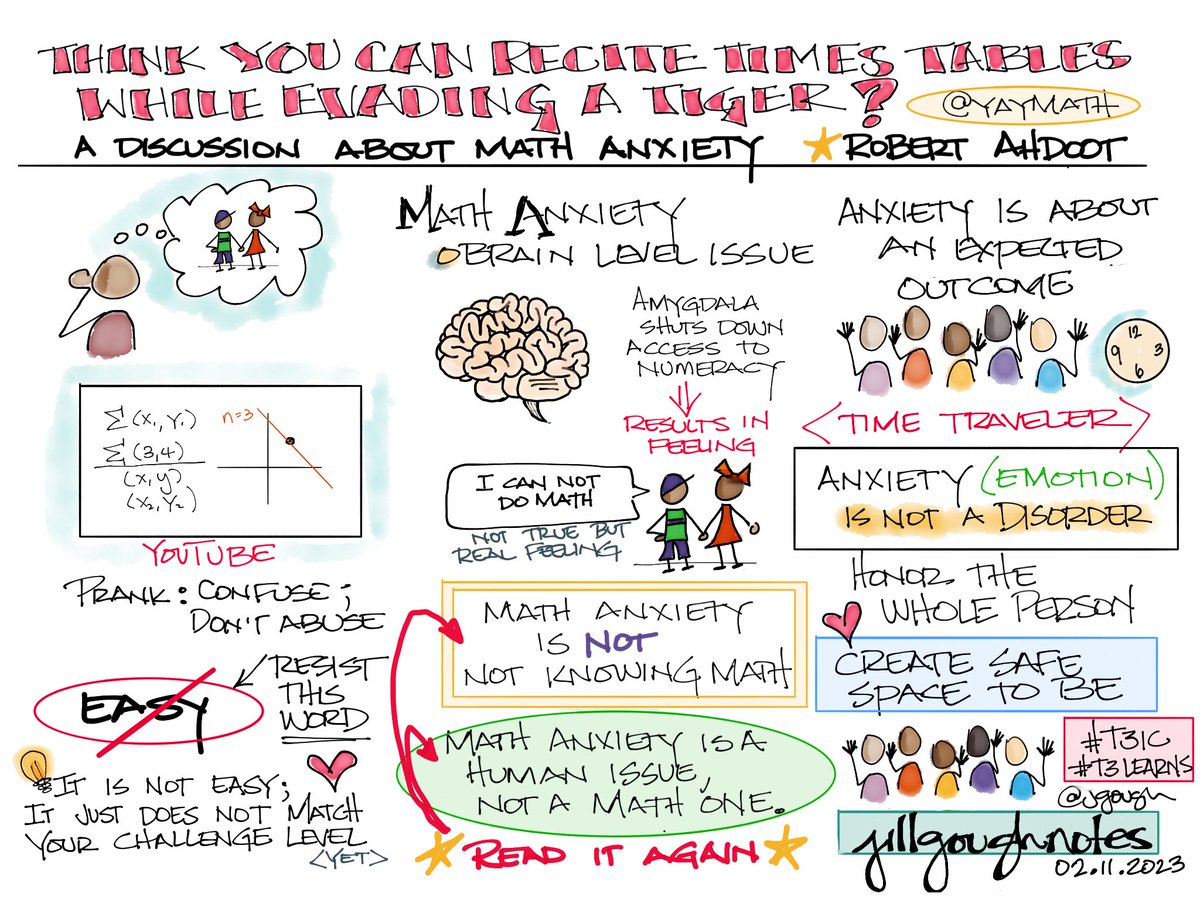 THINK YOU CAN RECITE TIMES TABLES
WHILE EVADING A TIGER?
@YAYMATH
A DISCUSSION ABOUT MATH ANXIETY
ROBERT AHDOOT
Σ(X₁,Y₁)
Σ(3,4)
(X,Y)
(X₂,Y₂)
n=3
YOUTUBE
PRANK: CONFUSE;
DON'T ABUSE
EASY
RESIST
THIS
WORD
IT IS NOT EASY;
IT JUST DOES NOT MATCH
YOUR CHALLENGE LEVEL
<YET>
MATH ANXIETY
BRAIN LEVEL ISSUE
AMYGDALA
SHUTS DOWN
ACCESS TO
NUMERACY
RESULTS IN
FEELING
I CAN NOT
DO MATH
NOT TRUE BUT
REAL FEELING
MATH ANXIETY
IS NOT
NOT KNOWING MATH
MATH ANXIETY IS A
HUMAN ISSUE,
NOT A MATH ONE.
READ IT AGAIN
ANXIETY IS ABOUT
AN EXPECTED
OUTCOME
12
9 3
6
<TIME TRAVELER>
ANXIETY (EMOTION)
IS NOT A DISORDER
HONOR THE
WHOLE PERSON
CREATE SAFE
SPACE TO BE
#T3IC
#T3LEARNS
@jgough
jillgoughnotes
02.11.2023